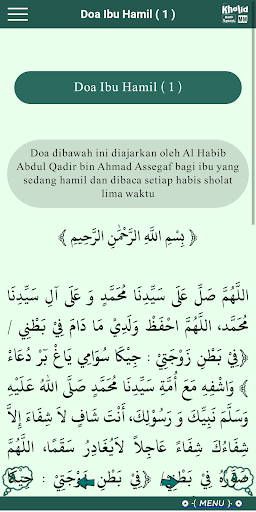 Doa Ibu Hamil ( 1 )
Kholid
MM
Doa Ibu Hamil ( 1 )
Doa dibawah ini diajarkan oleh Al Habib
Abdul Qadir bin Ahmad Assegaf bagi ibu yang
sedang hamil dan dibaca setiap habis sholat
lima waktu
﴿ بِسْمِ اللَّهِ الرَّحْمٰنِ الرَّحِيمِ ﴾
اللَّهُمَّ صَلِّ عَلَى سَيِّدِنَا مُحَمَّدٍ وَ عَلَى آلِ سَيِّدِنَا
مُحَمَّد، اللَّهُمَّ احْفَظْ وَلَدِيْ مَا دَامَ فِيْ بَطْنِي /
﴿فِيْ بَطْنِ زَوْجَتِيْ : جِيْكَا سُوَامِي يَاغْ بَرْ دُعَاءْ
﴾ وَاشْفِهِ مَعَ أُمَّةِ سَيِّدِنَا مُحَمَّدٍ صَلَّى اللهُ عَلَيْهِ
وَسَلَّمَ نَبِيِّكَ وَ رَسُوْلِكَ، أَنْتَ شَافٍ لاَ شِفَاءَ إِلاَّ
شِفَاءُكَ شِفَاءً عَاجِلاً لاَيُغَادِرُ سَقَمًا، اللَّهُمَّ
صَوِّرْهُ فِيْ بَطْنِي/ ﴿فِيْ بَطْنِ زَوْجَتِيْ : جِيْكَا
-{ MENU }-